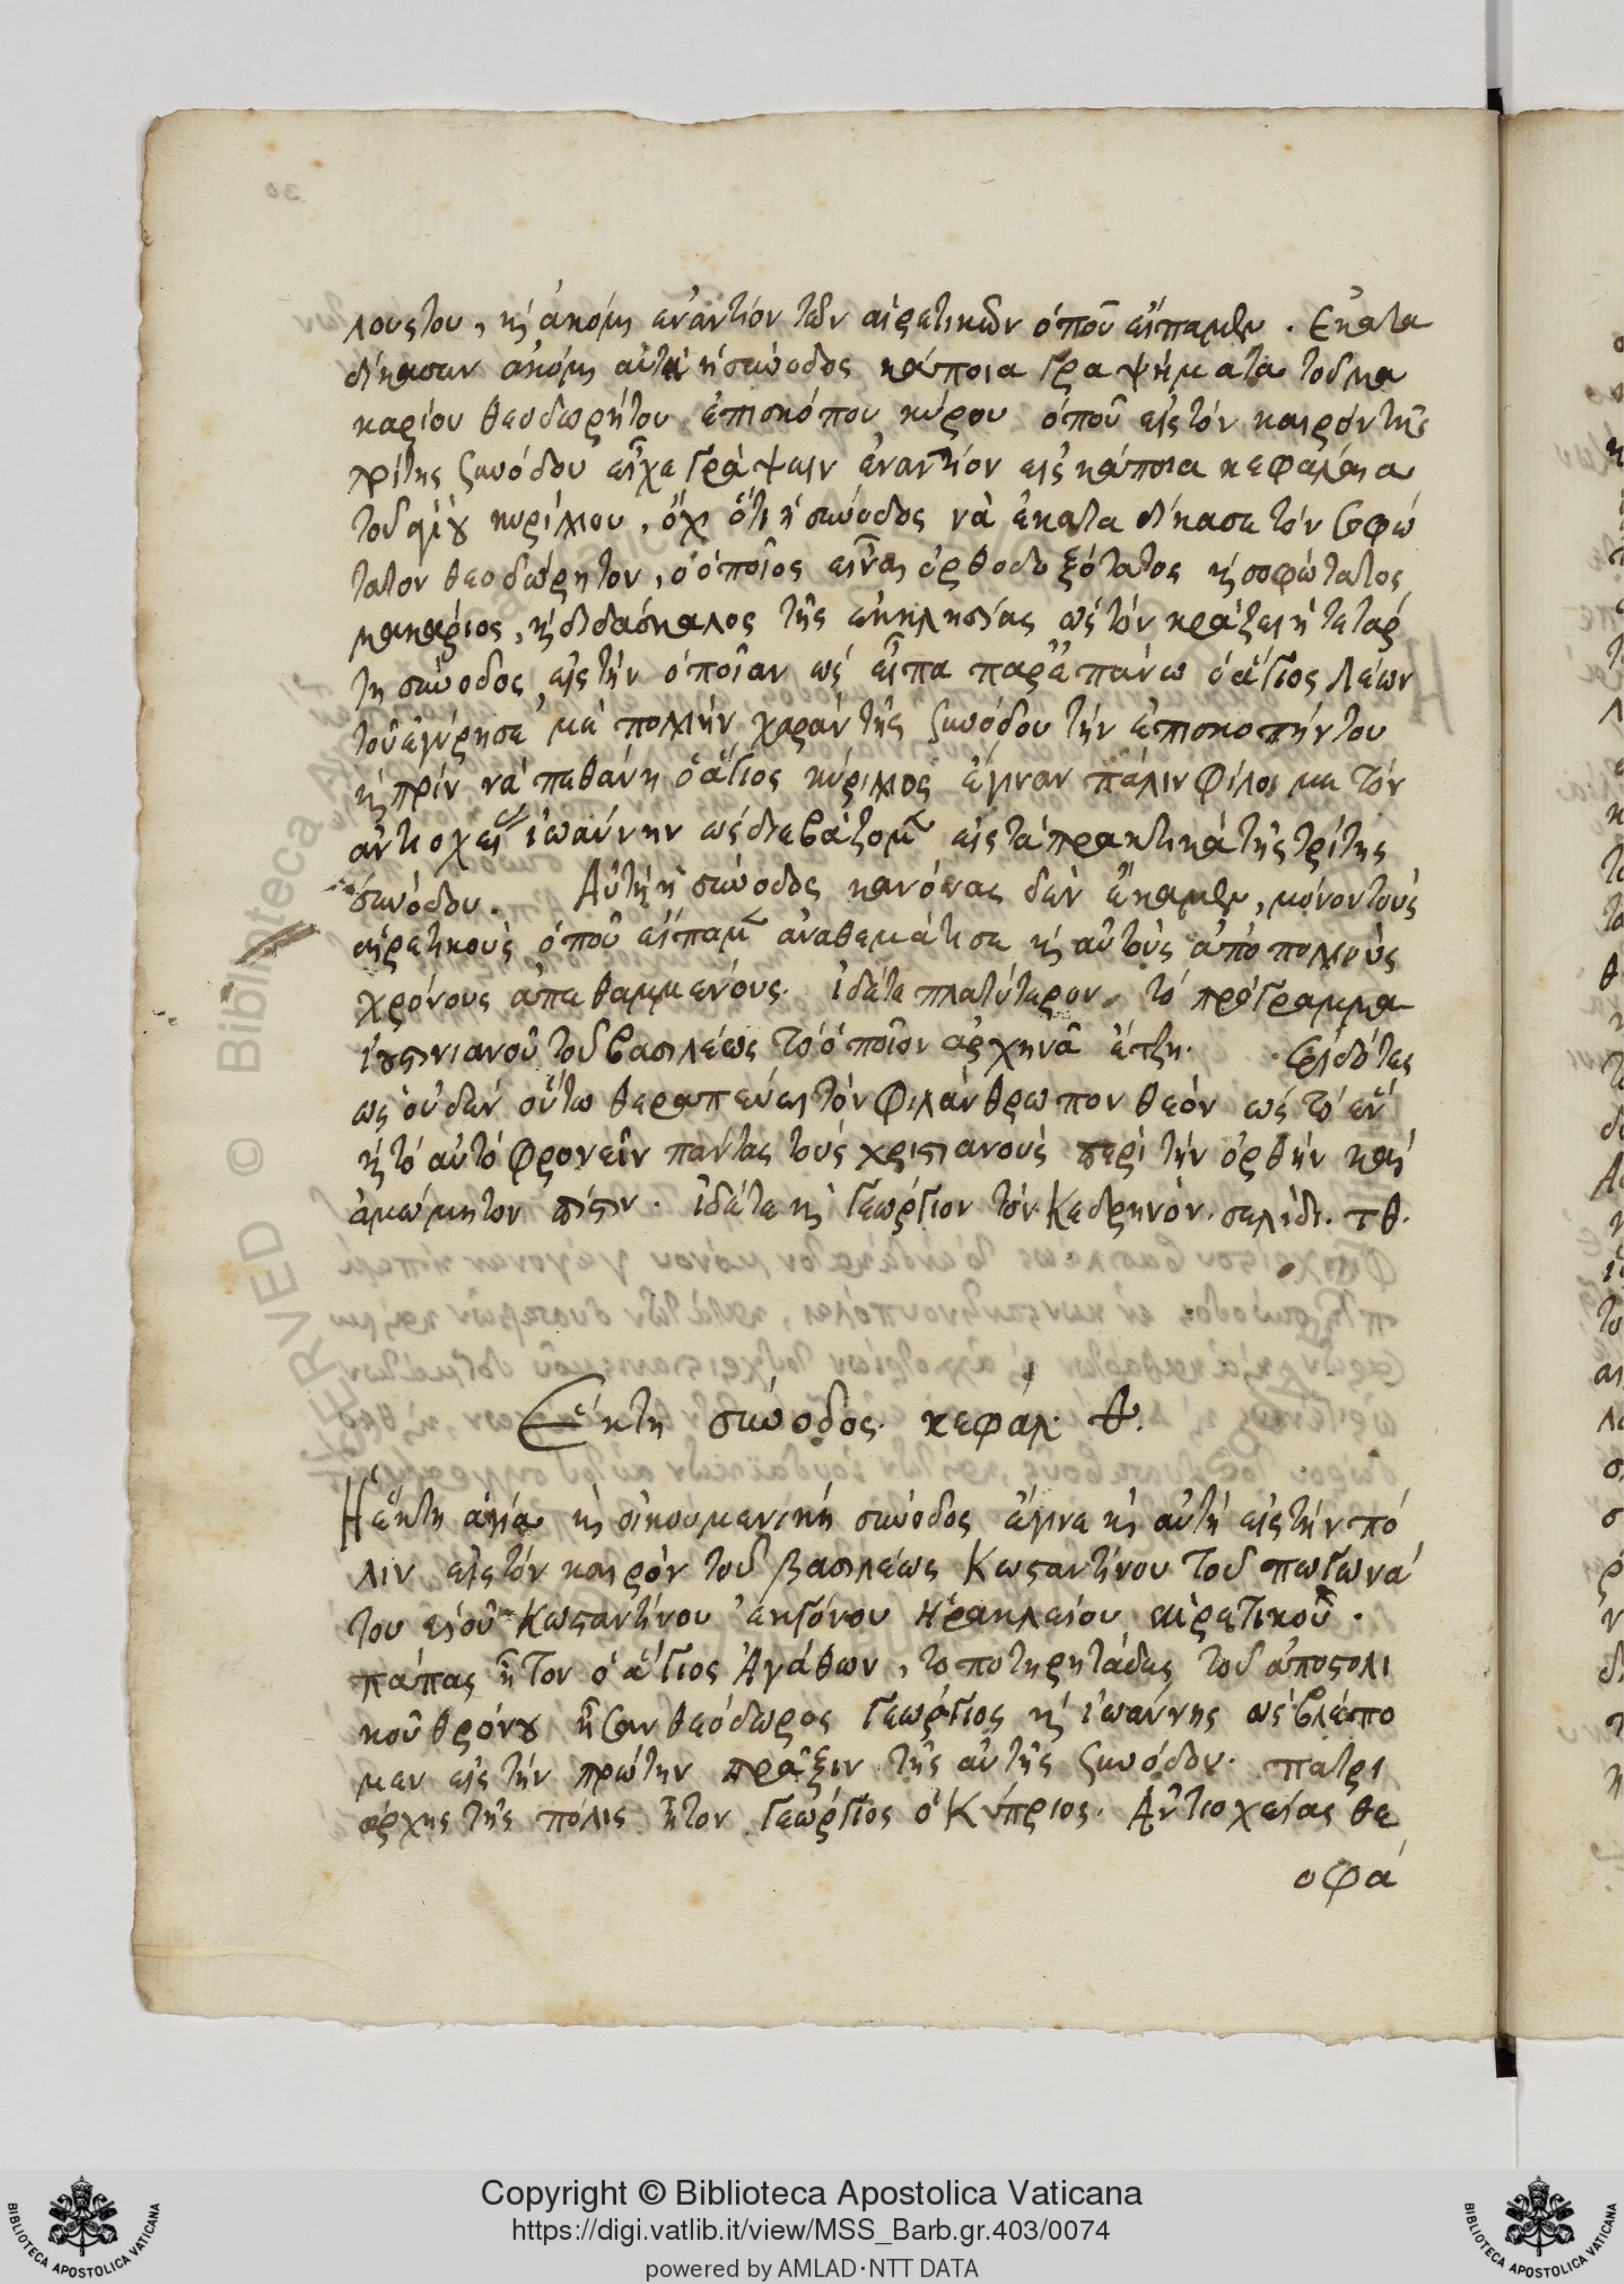 λουςτου, κ̀ ἀκόμη ἐναντίον τῶν αἱρετικῶν ὁποῦ εἴπαμεν. Ἐκατα
δίκασαν ἀκόμη αὐτὴ ἡ σύνοδος κάποια γραψήματα τοῦ μα
καρίου θεοδωρήτου ἐπισκόπου κύρου ὁποῦ εἰς τόν καιρόν τῆς
τρίτης συνόδου εἶχε γράψειν ἐναντίον εἰς κάποια κεφάλαια
τοῦ ἁγίου κυρίλλου, ὄχι ὅτι ἡ σύνοδος νὰ ἐκαταδίκασε τόν σοφώ
τατον θεοδώρητον, ὁ ὁποῖος εἶναι ὀρθοδοξότατος κ̀ σοφώτατος
μακάριος, κ̀ διδάσκαλος τῆς ἐκκλησίας ὡς τόν κράζει ἡ τετάρ
τη σύνοδος εἰς τήν ὁποῖαν ὡς εἶπα παρεπάνω ὁ ἅγιος Λέων
τοῦ ἐγύρησε μὲ πολλήν χαράν τῆς συνόδου τήν ἐπισκοπήν του
κ̀ πρίν νὰ πεθάνη ὁ ἅγιος κύριλλος ἔγιναν πάλιν φίλοι με τόν
ἀντιοχείας ἰωάννην ὡς διεβάζομεν εἰς τά πρακτικά τῆς τρίτης
συνόδου. Αὐτὴ ἡ σύνοδος κανόνας δέν ἔκαμεν, μόνον τούς
αἱρετικούς ὁποῦ εἴπαμεν ἀναθεμάτησε κ̀ αὐτούς ἀπό πολλούς
χρόνους ἀπεθαμμενους. ἰδέτε πλατύτερον τό πρόγραμμα
ἰουστινιανοῦ τοῦ βασιλέως τό ὁποῖον ἀρχηνᾶ ἔτζη. εἰδότες
ὡς οὐδέν οὕτω θεραπεύει τόν φιλάνθρωπον θεόν ὡς τό ἕν
κ̀ τό αὐτό φρονεῖν πάντας τούς χριστιανούς περί τήν ὀρθήν καί
ἀμώμητον πίστιν. ἰδέτε κ̀ Γεώργιον τόν Κεδρηνόν. σελίδι. τθ.
Ἕκτη σύνοδος. κεφάλ. θ.
Ἡ ἕκτη ἁγία κ̀ οἰκουμενική σύνοδος ἔγινε κ̀ αὐτή εἰς τήν πό
λιν εἰς τόν καιρόν τοῦ βασιλέως Κωσταντίνου τοῦ πωγωνά
του εἱοῦ Κωσταντίνου ἐκγόνου Ἡρακλείου αἱρετικοῦ.
πάπας ἦτον ὁ ἅγιος Ἀγάθων, τοποτηρητάδες τοῦ ἀποστολι
κοῦ θρόνου ἦσαν θεόδωρος Γεώργιος κ̀ ἰωάννης ὡς βλέπο
μεν εἰς τήν πρώτην πρᾶξιν τῆς αὐτῆς συνόδου. πατρι
άρχης τῆς πόλις ἦτον Γεώργιος ὁ Κύπριος. Ἀντιοχείας θε
οφά
Copyright © Biblioteca Apostolica Vaticana
https://digi.vatlib.it/view/MSS_Barb.gr.403/0074
powered by AMLAD·NTT DATA